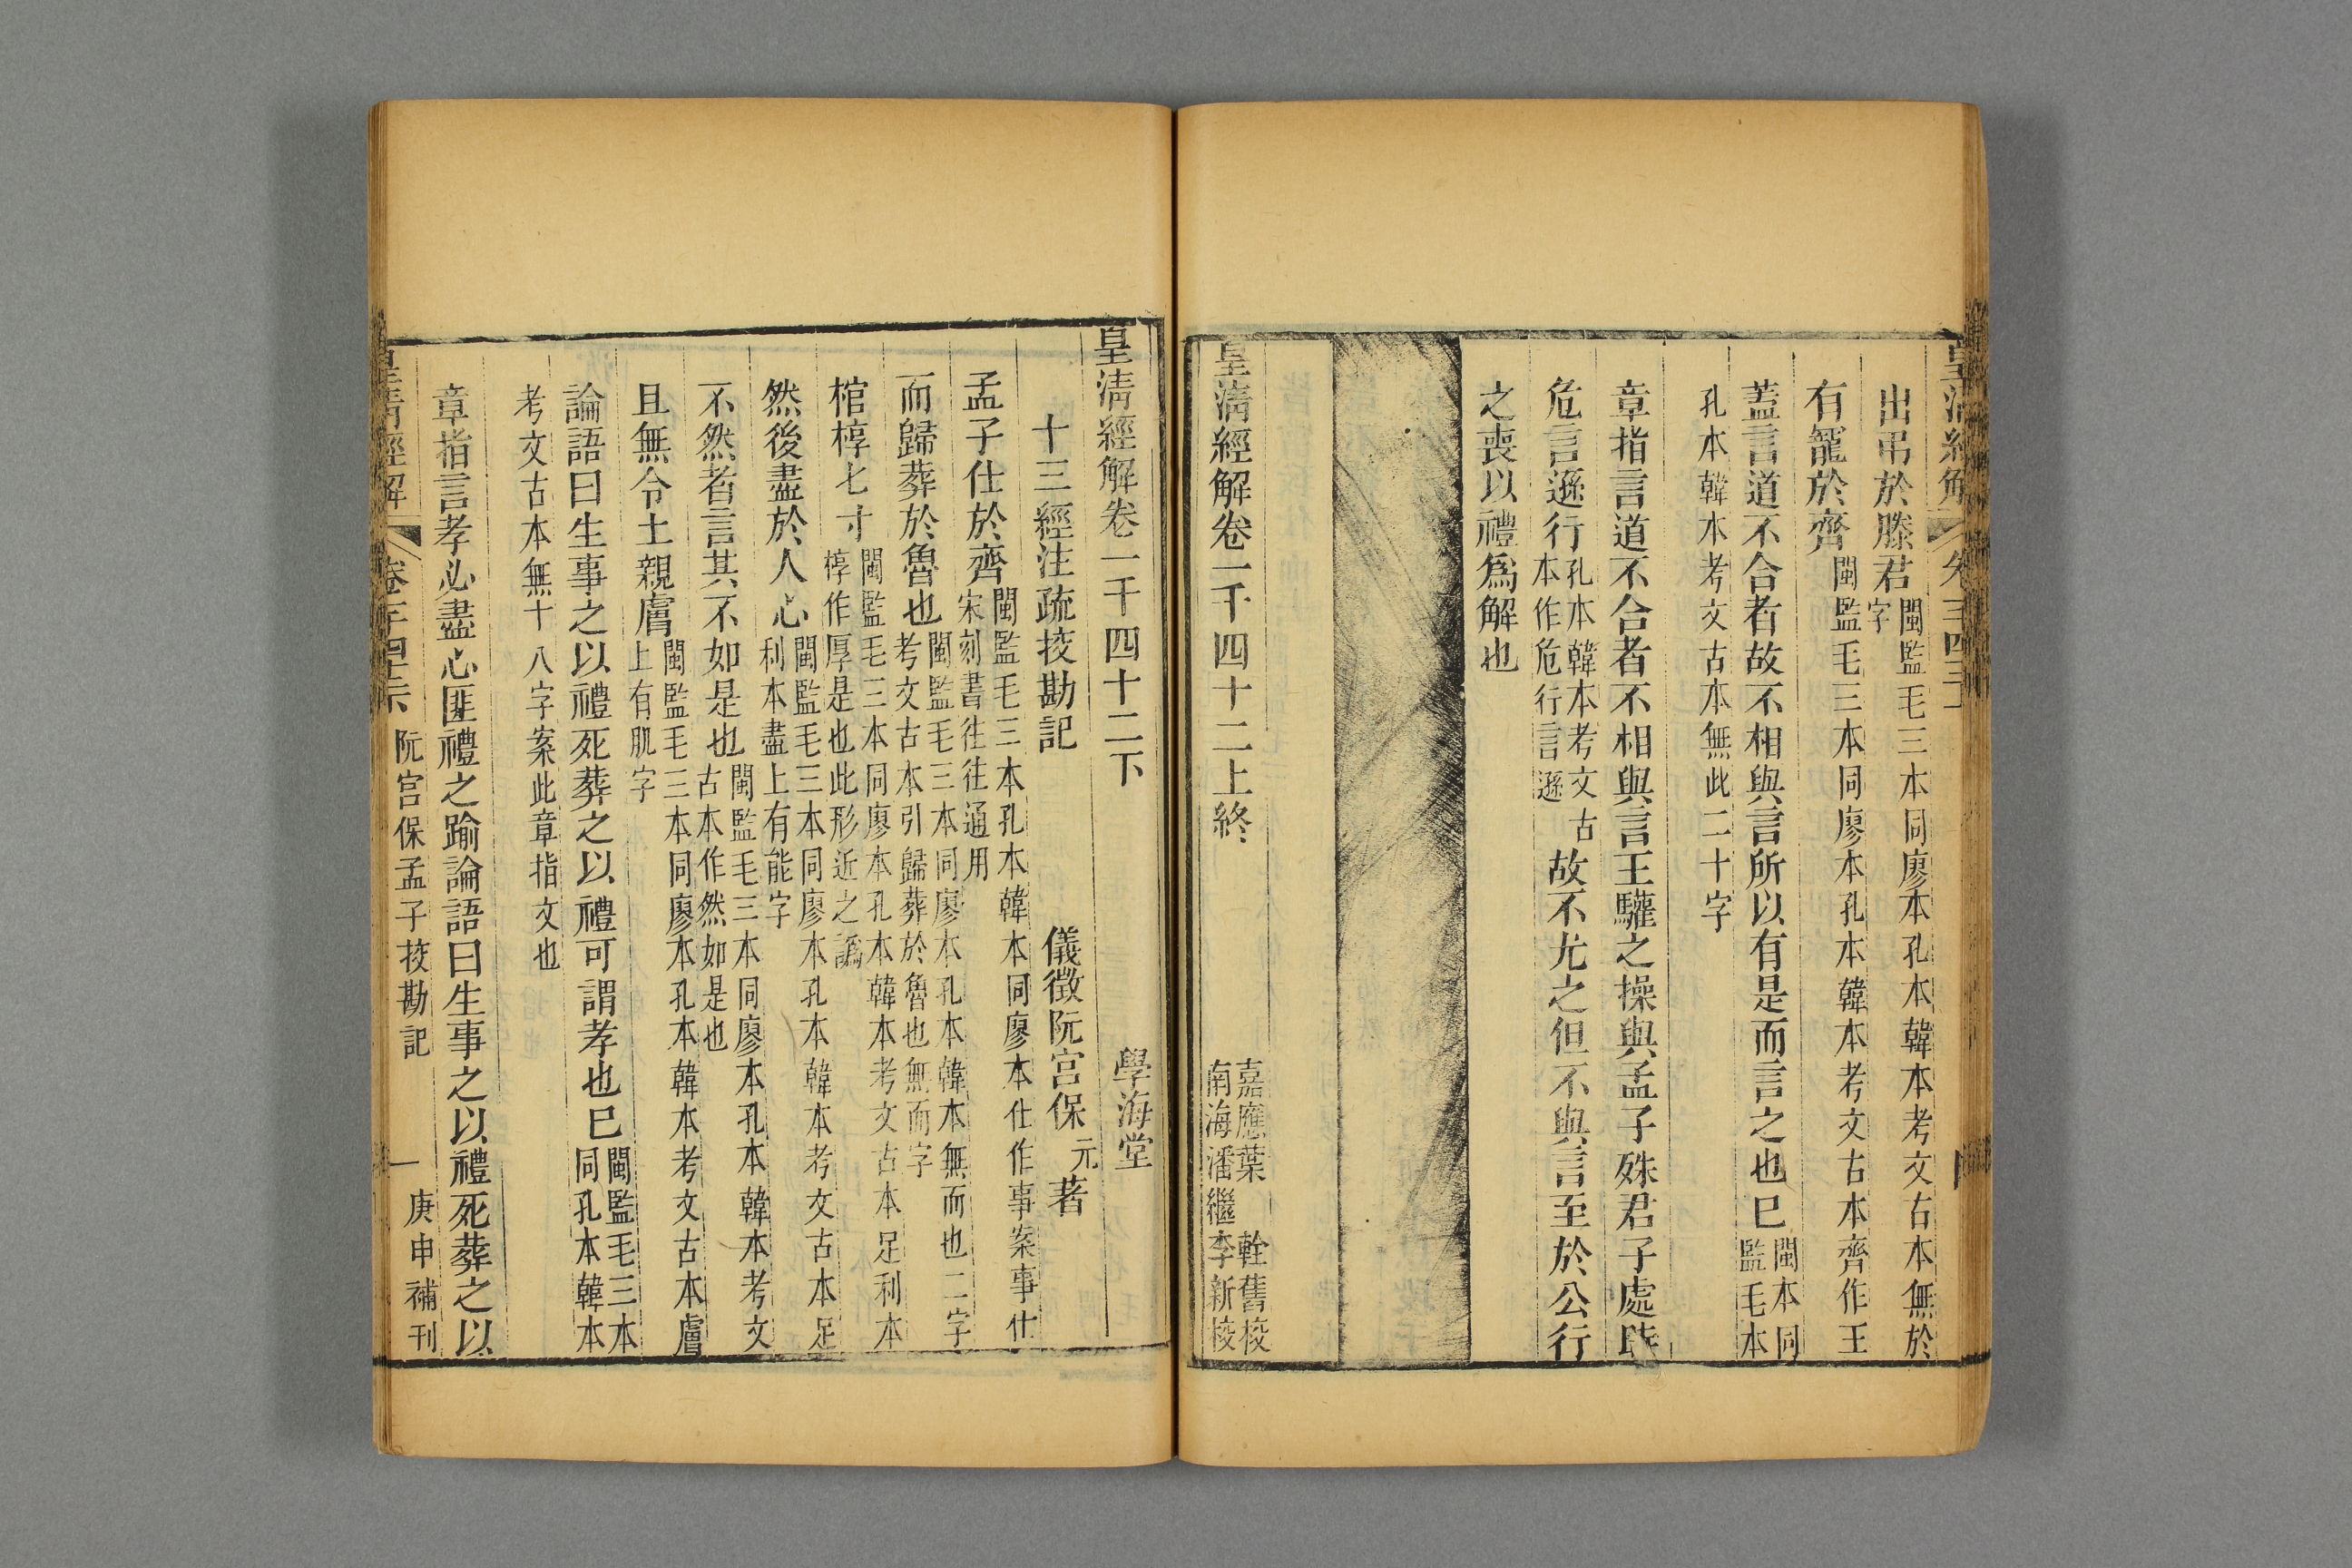 出吊於滕君閩監毛三本同廖本孔本韓本考文古本無於字
有寵於齊閩監毛三本同廖本孔本韓本考文古本齊作王
蓋言道不合者故不相與言所以有是而言之也巳閩本同監毛本
孔本韓本考文古本無此二十字
章指言道不合者不相與言王驩之操與孟子殊君子處時
危言遜行孔本韓本考文古本作危行言遜故不尤之但不與言至於公行
之喪以禮爲解也
皇清經解卷一千四十二上終
嘉應葉 輇舊校
南海潘繼李新校
皇清經解卷一千四十二下
學海堂
十三經注疏挍勘記
儀徵阮宮保元著
孟子仕於齊閩監毛三本孔本韓本同廖本仕作事案事仕宋刻書往往通用
而歸葬於魯也閩監毛三本同廖本孔本韓本無而也二字考文古本引歸葬於魯也無而字
棺椁七寸閩監毛三本同廖本孔本韓本考文古本足利本椁作厚是也此形近之譌
然後盡於人心閩監毛三本同廖本孔本韓本考文古本足利本盡上有能字
不然者言其不如是也閩監毛三本同廖本孔本韓本考文古本作然如是也
且無令土親膚閩監毛三本同廖本孔本韓本考文古本膚上有肌字
論語曰生事之以禮死葬之以禮可謂孝也巳閩監毛三本同孔本韓本
考文古本無十八字案此章指文也
章指言孝必盡心匪禮之踰論語曰生事之以禮死葬之以
皇清經解
阮宮保孟子挍勘記
一
庚申補刊